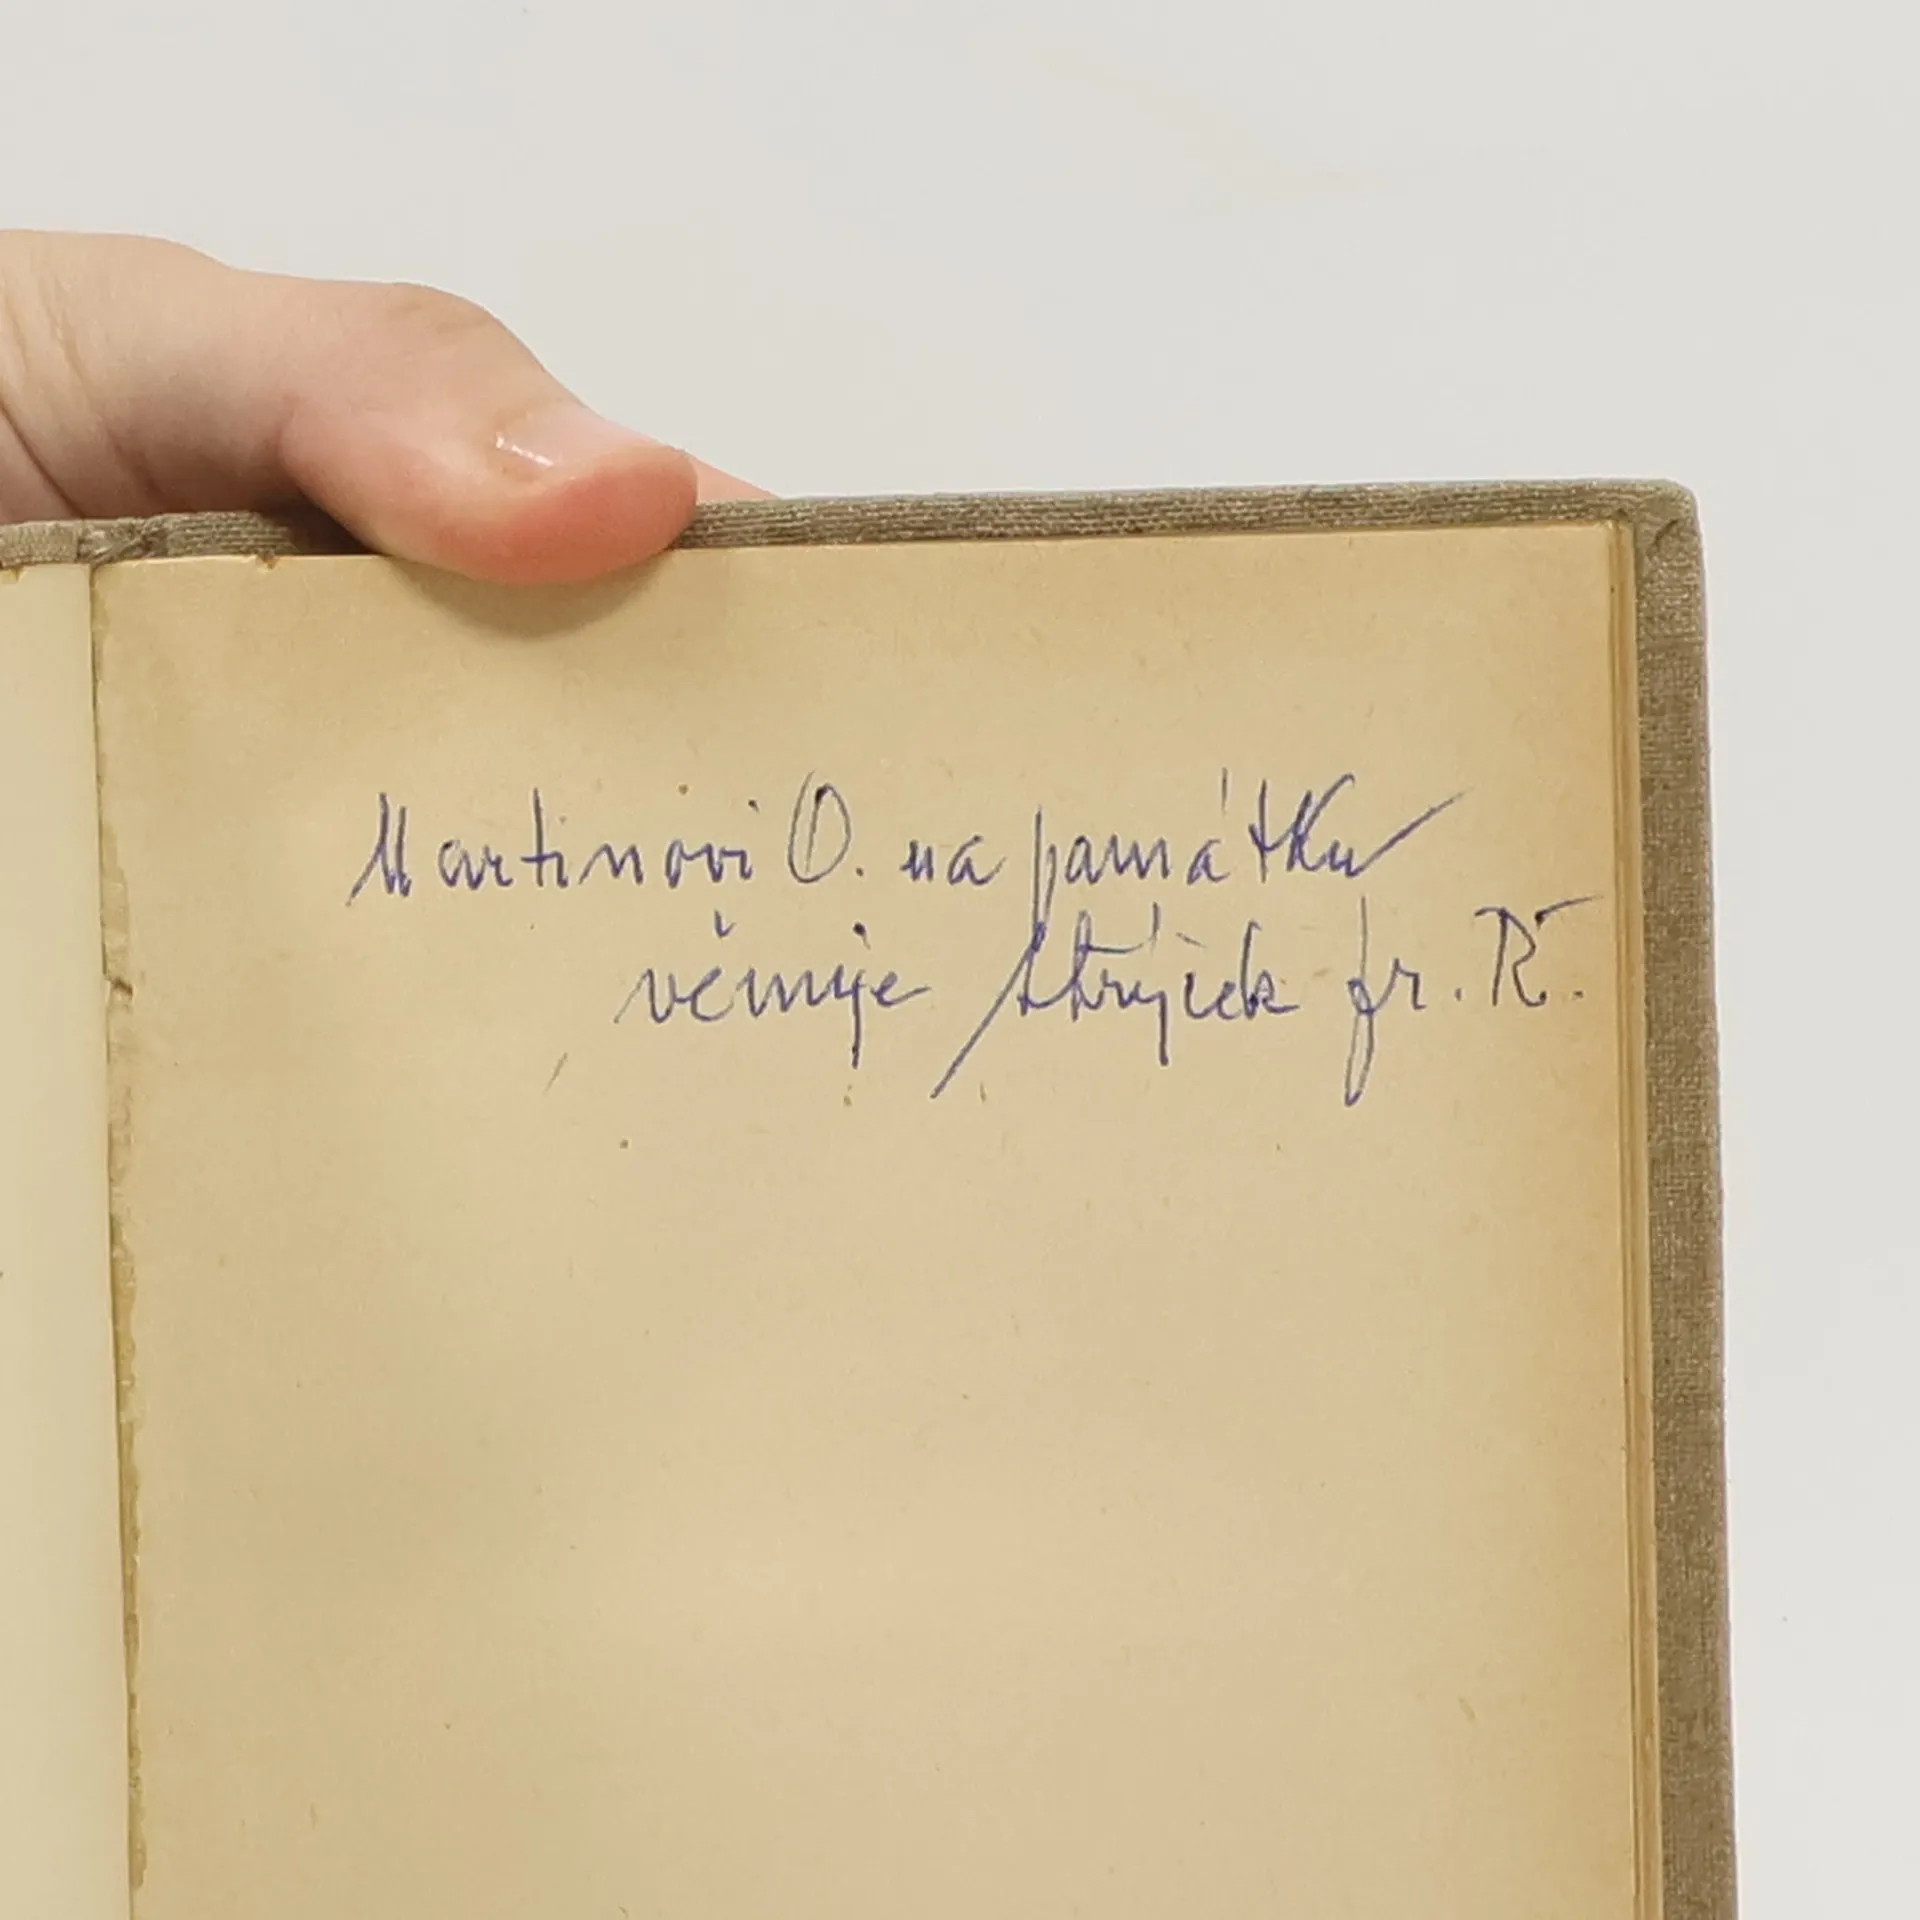 Martinovi O. na památku
věnuje strýček fr. R.